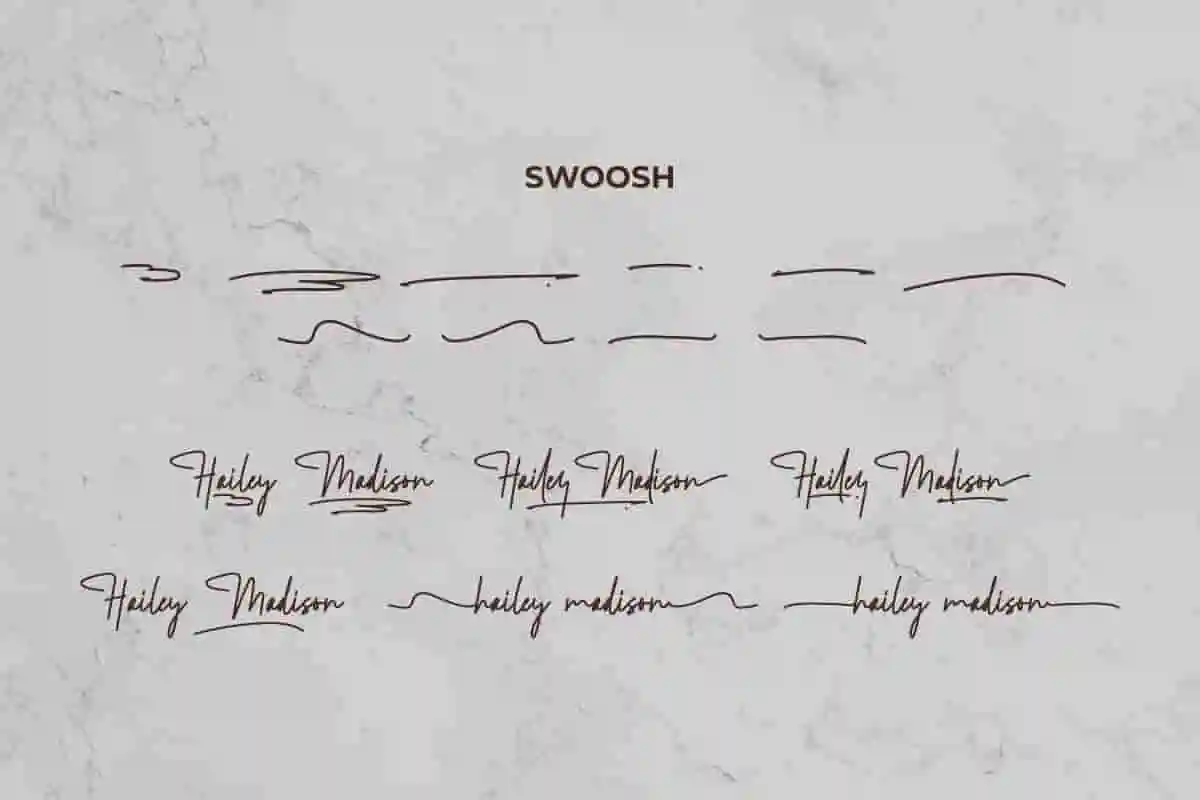 SWOOSH
Hailey Madison Hailey Madison Hailey Madison
Hailey Madison hailey madison hailey madison